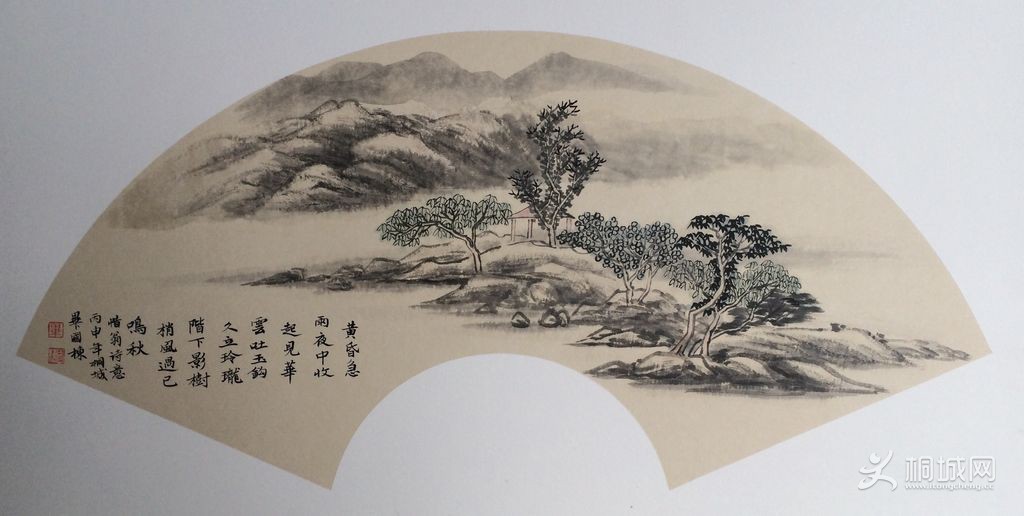 黃昏急
雨夜中收
起見華
雲吐玉鈎
久立玲瓏
階下影樹
梢風過已
鳴秋
惜翁诗意
丙申年桐城
畢國棟
桐城网
www.itongcheng.cc